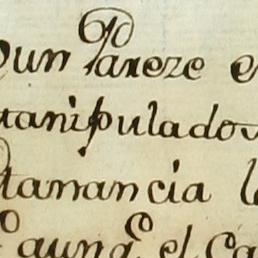 un Pareze e
tanipulado
tanancia l
aunq.e el Ca